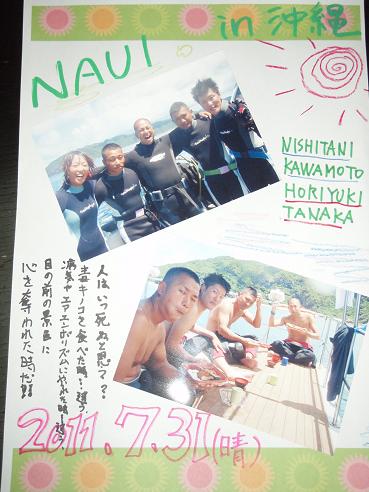 NAUI in 沖縄
NISHITANI
KAWAMOTO
HORIYUKI
TANAKA
人はいつ死ぬと思う??
毒キノコを食べた時…違う
病気やエアエンボリズムにやられた時…違う
目の前の景色に
心を奪われた時だ!!
2011.7.31(晴)